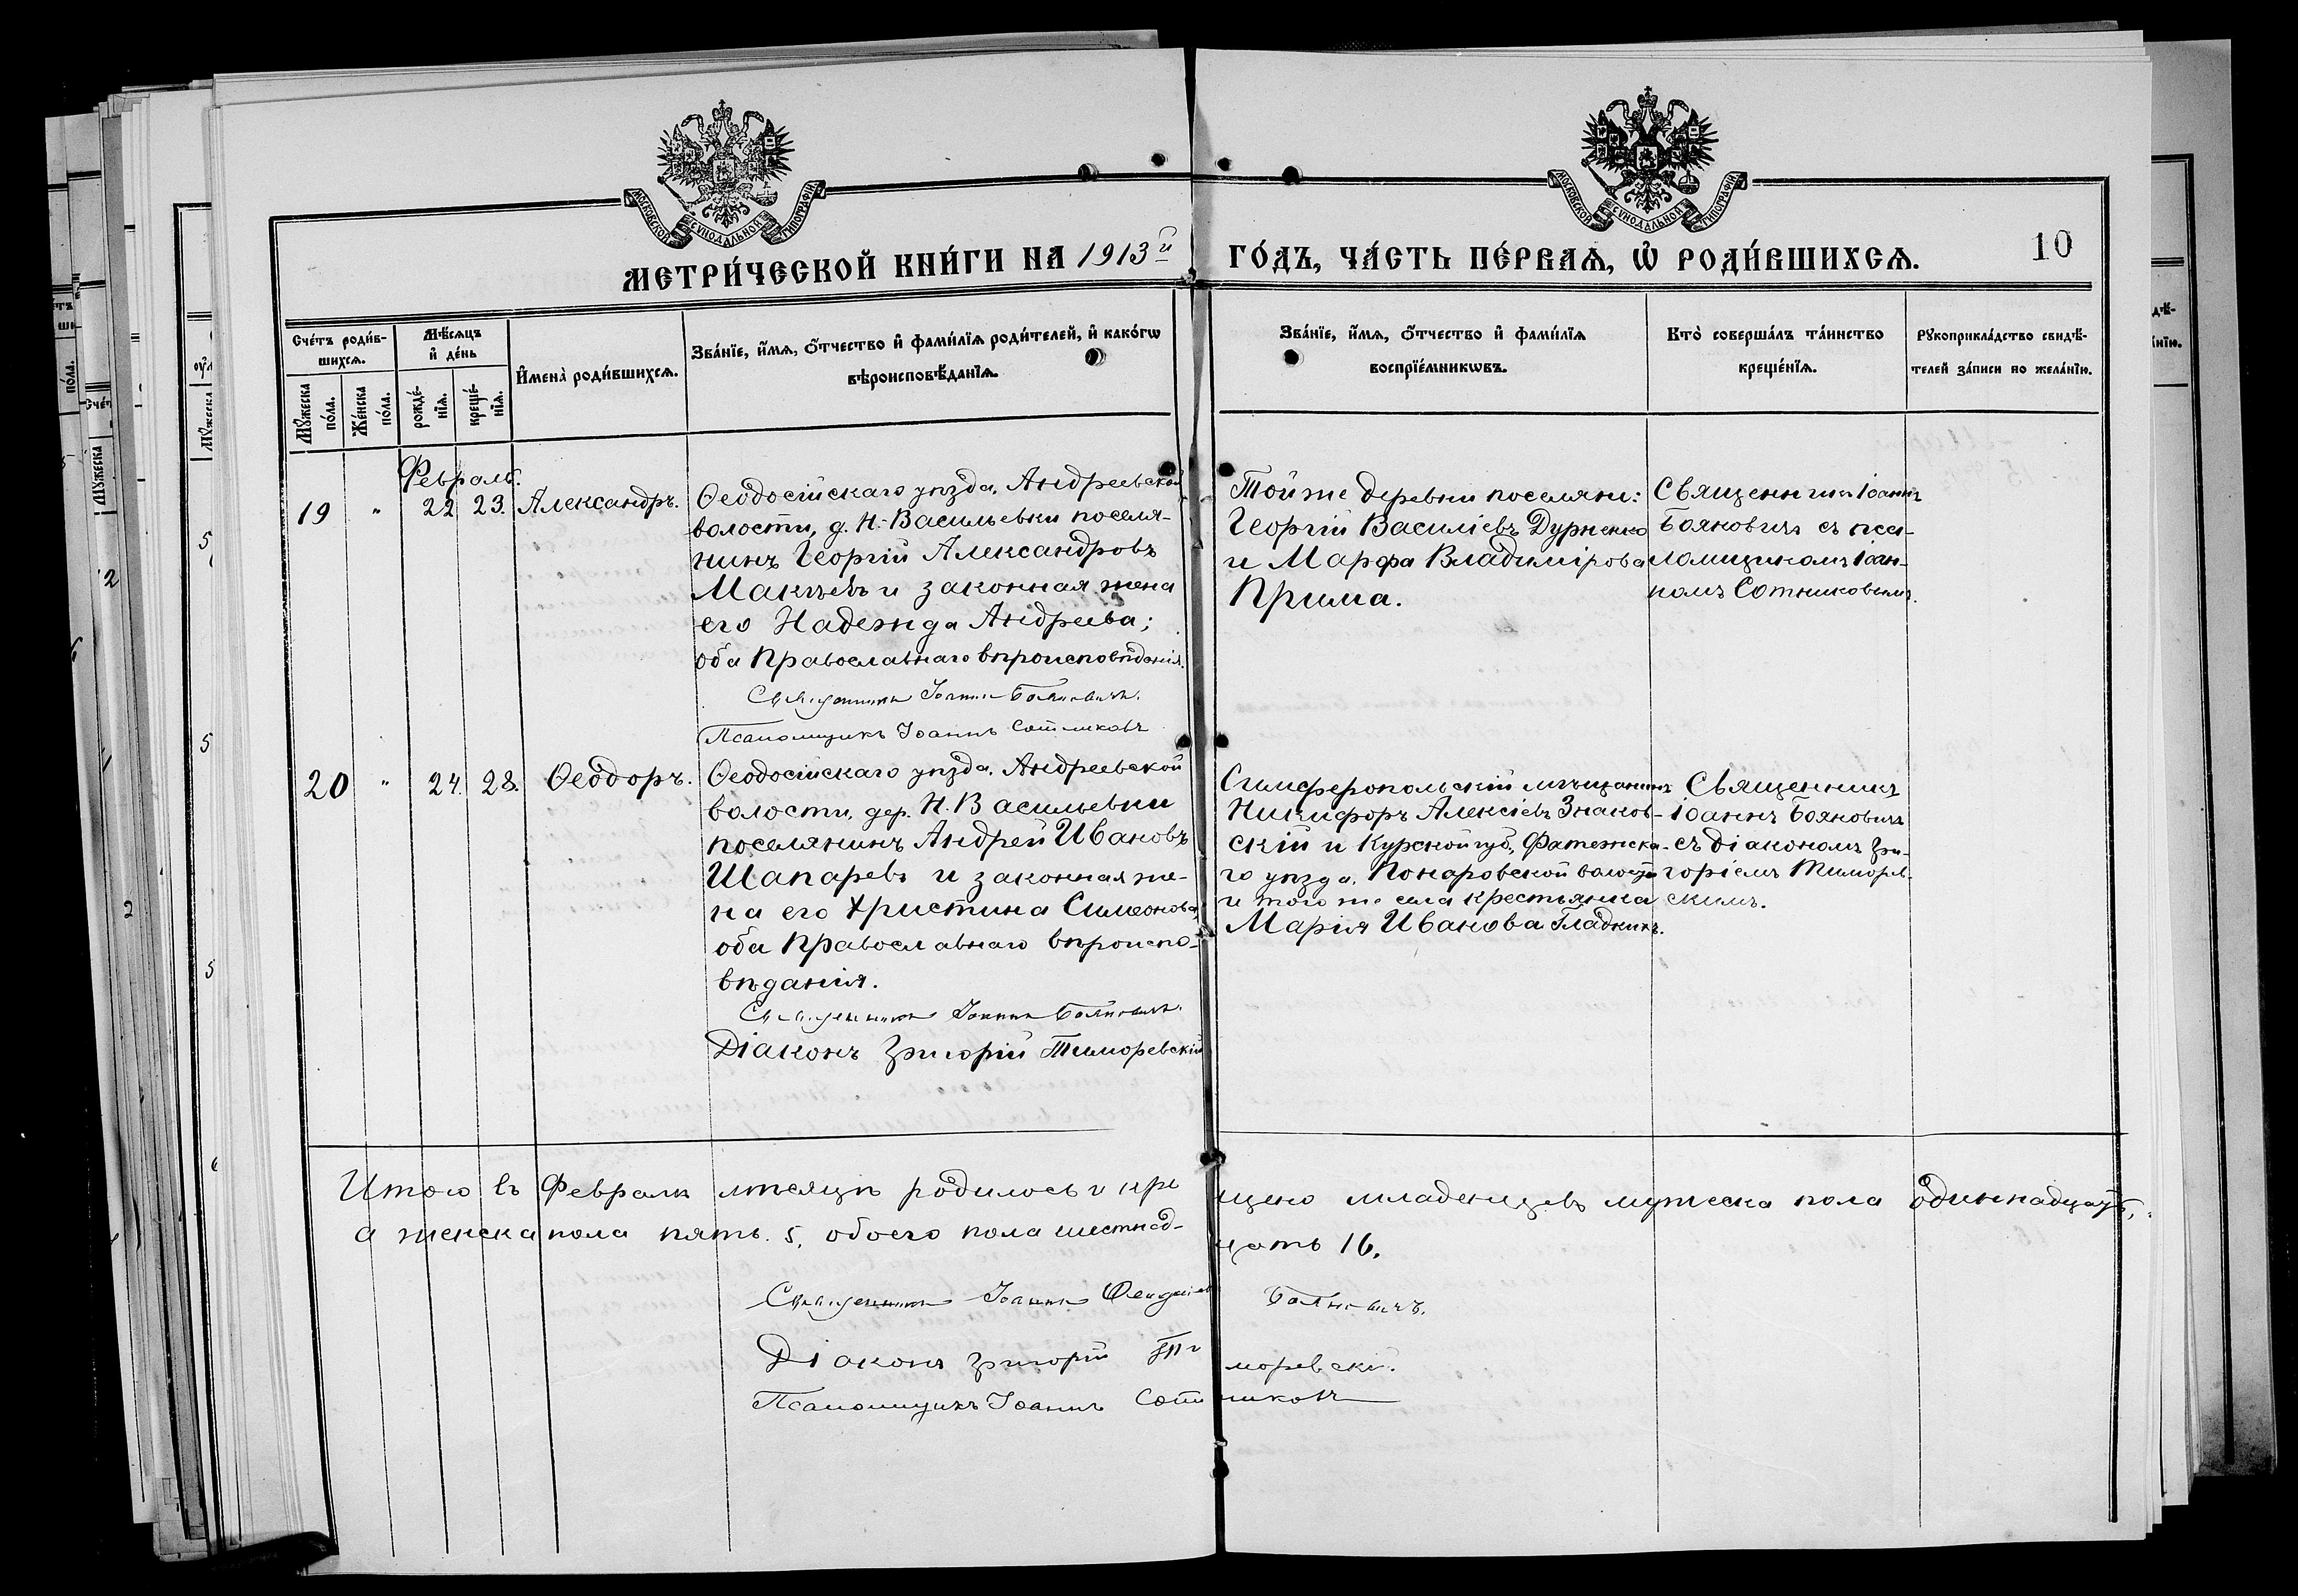 МОСКОВСКОЙ СѴНОДАЛЬНОЙ ТИПОГРАФІИ
МОСКОВСКОЙ СѴНОДАЛЬНОЙ ТИПОГРАФІИ
МЕТРИ́ЧЕСКОЙ КНИ́ГИ НА 1913й ГО́ДЪ, ЧА́СТЬ ПЕ́РВАѦ, Ѡ҆ РОДИ́ВШИХСѦ.
10
Сче́тъ роди́в-
шихсѧ.
Мꙋ́жеска по́ла.
Же́нска по́ла.
Мѣ́сѧцъ
и҆ де́нь
рожде́-
нїѧ.
креще́-
нїѧ.
И҆мена̀ роди́вшихсѧ.
Зва́нїе, и҆́мѧ, ѻ҆́тчество и҆ фами́лїѧ роди́телей, и҆ како́гѡ
вѣроисповѣ́данїѧ.
Зва́нїе, и҆́мѧ, ѻ҆́тчество и҆ фами́лїѧ
воспрїе́мникѡвъ.
Кто̀ соверша́лъ та́инство
креще́нїѧ.
Рꙋкоприкла́дство свидѣ́-
телей за́писи по жела́нїю.
Февраль.
19 " 22 23. Александръ.
Ѳеодосійскаго уѣзда, Андреевской
волости, д. Н.-Васильевки поселя-
нинъ Георгій Александровъ
Макѣевъ и законная жена
его Надежда Андреева;
оба Православнаго вѣроисповѣданія.
Священникъ Іоаннъ Бояновичъ.
Псаломщикъ Іоаннъ Сотниковъ
Тойже деревни поселяне:
Георгій Василіевъ Дурненко
и Марѳа Владимірова
Прима.
Священникъ Іоаннъ
Бояновичъ съ пса-
ломщикомъ Іоан-
номъ Сотниковымъ.
20 " 24. 28. Ѳеодоръ.
Ѳеодосійскаго уѣзда, Андреевской
волости, дер. Н. Васильевки
поселянинъ Андрей Ивановъ
Шапаревъ и законная же-
на его Христина Симеонова,
оба Православнаго вѣроиспо-
вѣданія.
Священникъ Іоаннъ Бояновичъ.
Діаконъ Григорій Тиморевскій
Симферопольскій мѣщанинъ
Никифоръ Алексіевъ Знаков-
скій и Курской губ, Фатежска-
го уѣзда, Понаровской волости
и того же села крестьянка
Марія Иванова Гладкихъ.
Священникъ
Іоаннъ Бояновичъ
съ Діакономъ Гри-
горіемъ Тиморев-
скимъ.
Итого въ Февралѣ мѣсяцѣ родилось и крещено младенцевъ мужеска пола одиннадцать,
а женска пола пять. 5, обоего пола шестнадцать 16.
Священникъ Іоаннъ Бояновичъ.
Діаконъ Григорій Тиморевскій.
Псаломщикъ Іоаннъ Сотниковъ